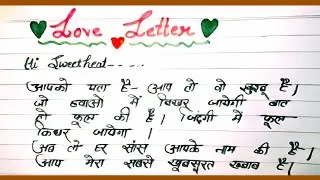 Love Letter
Hi Sweetheat-----
आपको पता है- आप तो वो खुशबू है।
जो हवाओ में बिखर जायेगी बात
तो फूल की है। जिंदगी में फूल-
किधर जायेगा।
अब तो हर सांस आपके नाम की है।
आप मेरा सबसे खूबसूरत ख्वाब है।